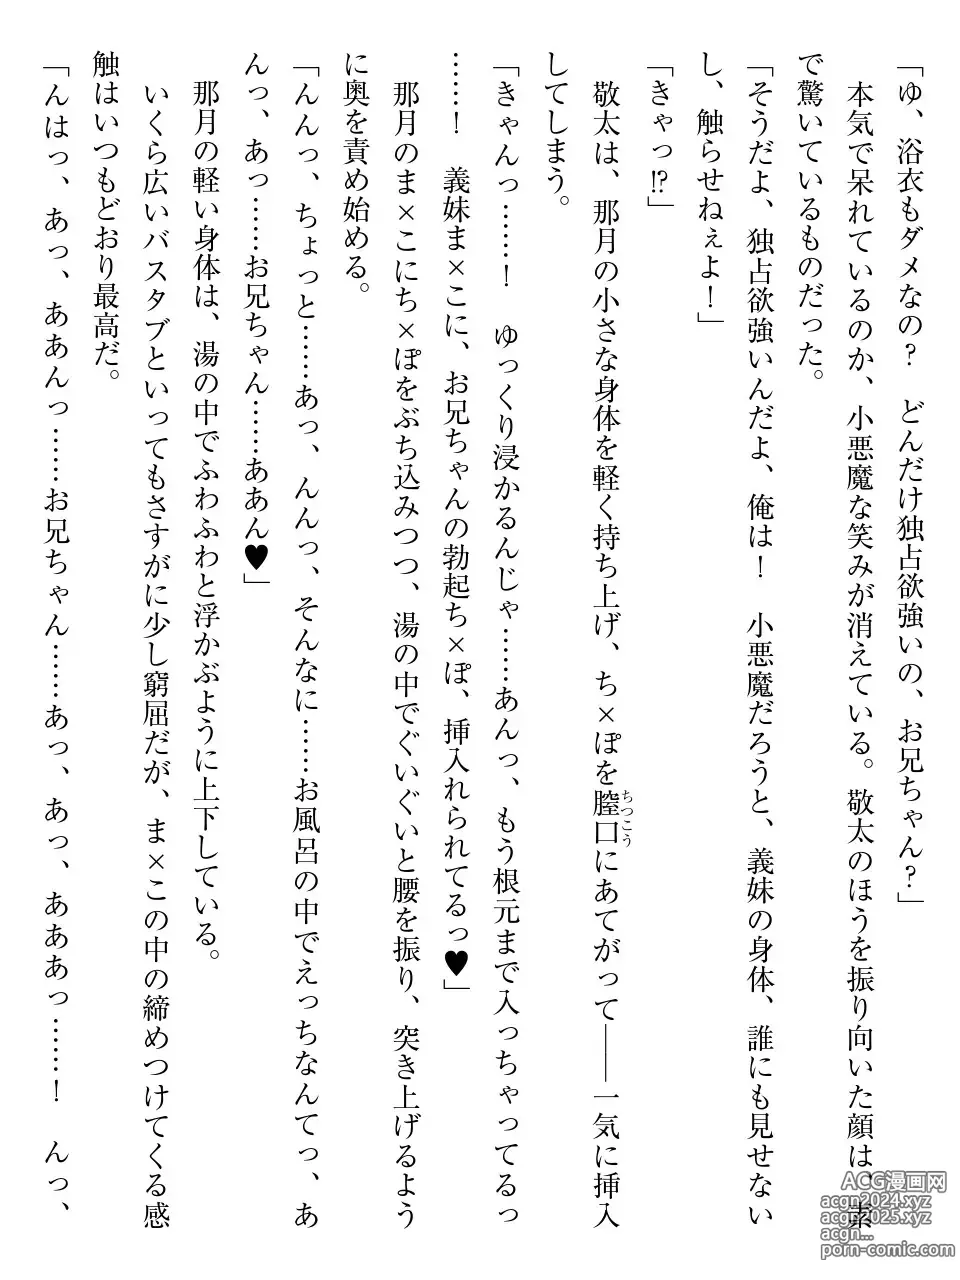 「ゆ、浴衣もダメなの？　どんだけ独占欲強いの、お兄ちゃん？」
本気で呆れているのか、小悪魔な笑みが消えている。敬太のほうを振り向いた顔は、素
で驚いているものだった。
「そうだよ、独占欲強いんだよ、俺は！　小悪魔だろうと、義妹の身体、誰にも見せない
し、触らせねぇよ！」
「きゃっ!?」
敬太は、那月の小さな身体を軽く持ち上げ、ち×ぽを膣口にあてがって――一気に挿入
ちつこう
してしまう。
「きゃんっ……！　ゆっくり浸かるんじゃ……あんっ、もう根元まで入っちゃってるっ
……！　義妹ま×こに、お兄ちゃんの勃起ち×ぽ、挿入れられてるっ♥」
那月のま×こにち×ぽをぶち込みつつ、湯の中でぐいぐいと腰を振り、突き上げるよう
に奥を責め始める。
「んんっ、ちょっと……あっ、んんっ、そんなに……お風呂の中でえっちなんてっ、あ
んっ、あっ……お兄ちゃん……ああん♥」
那月の軽い身体は、湯の中でふわふわと浮かぶように上下している。
いくら広いバスタブといってもさすがに少し窮屈だが、ま×この中の締めつけてくる感
触はいつもどおり最高だ。
「んはっ、あっ、ああんっ……お兄ちゃん……あっ、あっ、あああっ……！　んっ、
ACG漫画网
acgn2024.xyz
acgn2025.xyz
acgn...
porn-comic.com